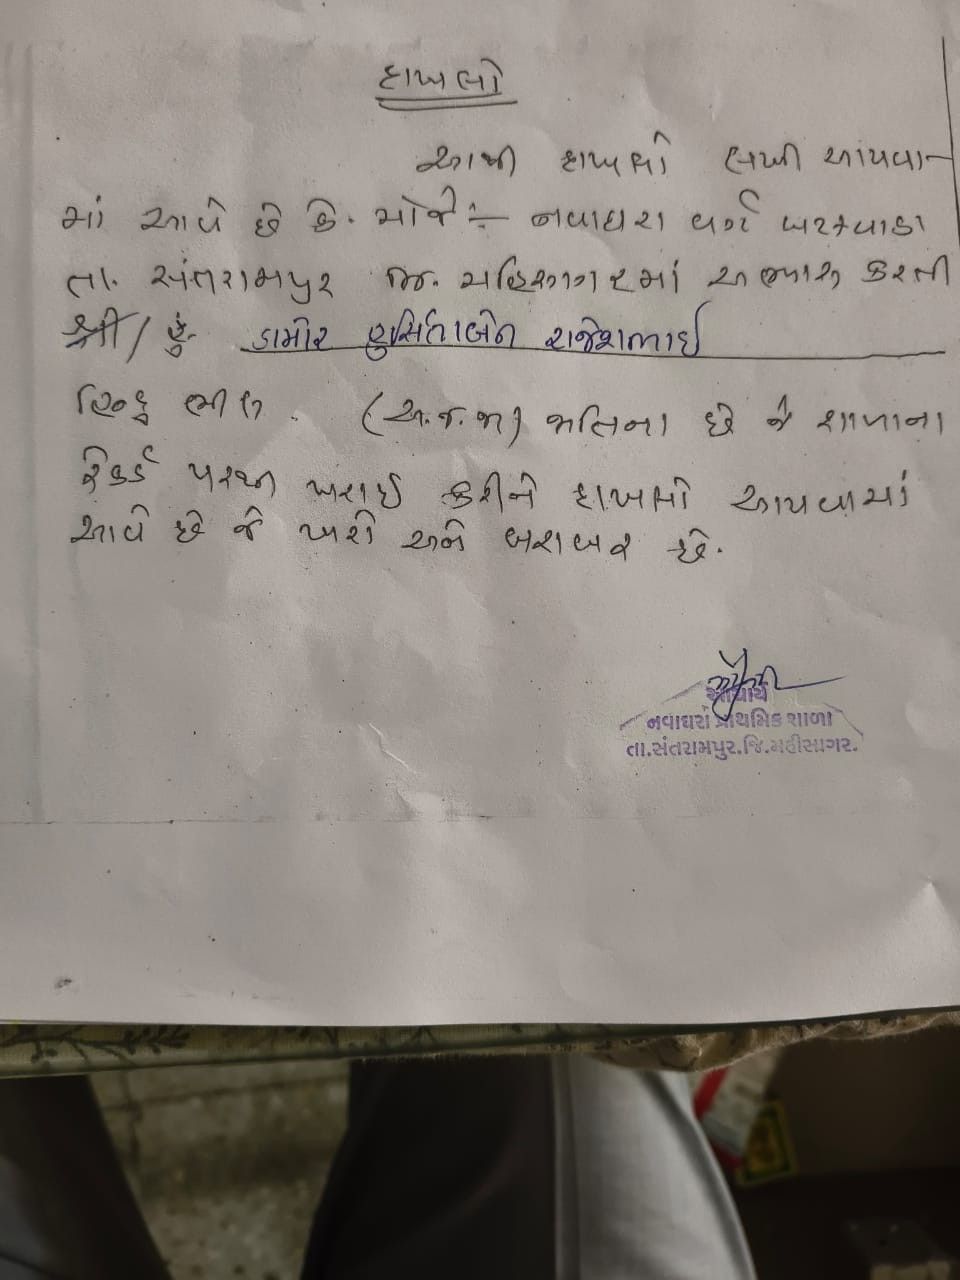 દાખલો
આથી દાખલો લખી આપવા-
માં આવે છે કે. મોજે :- નવાઘરા વર્ગ
તા. સંતરામપુર જી. મહિસાગરમાં અભ્યાસ કરતી
શ્રી / કુ. ડામોર સુમિતાબેન રાજેશભાઇ
હિન્દુ ભીલ. (અ.જ.જા) જાતિના છે જે શાળાના
રેકર્ડ પરથી ખરાઇ કરીને દાખલો આપવામાં
આવે છે જે ખરો અને બરાબર છે.
આચાર્ય
નવાઘરા પ્રાથમિક શાળા
તા.સંતરામપુર.જિ.મહીસાગર.